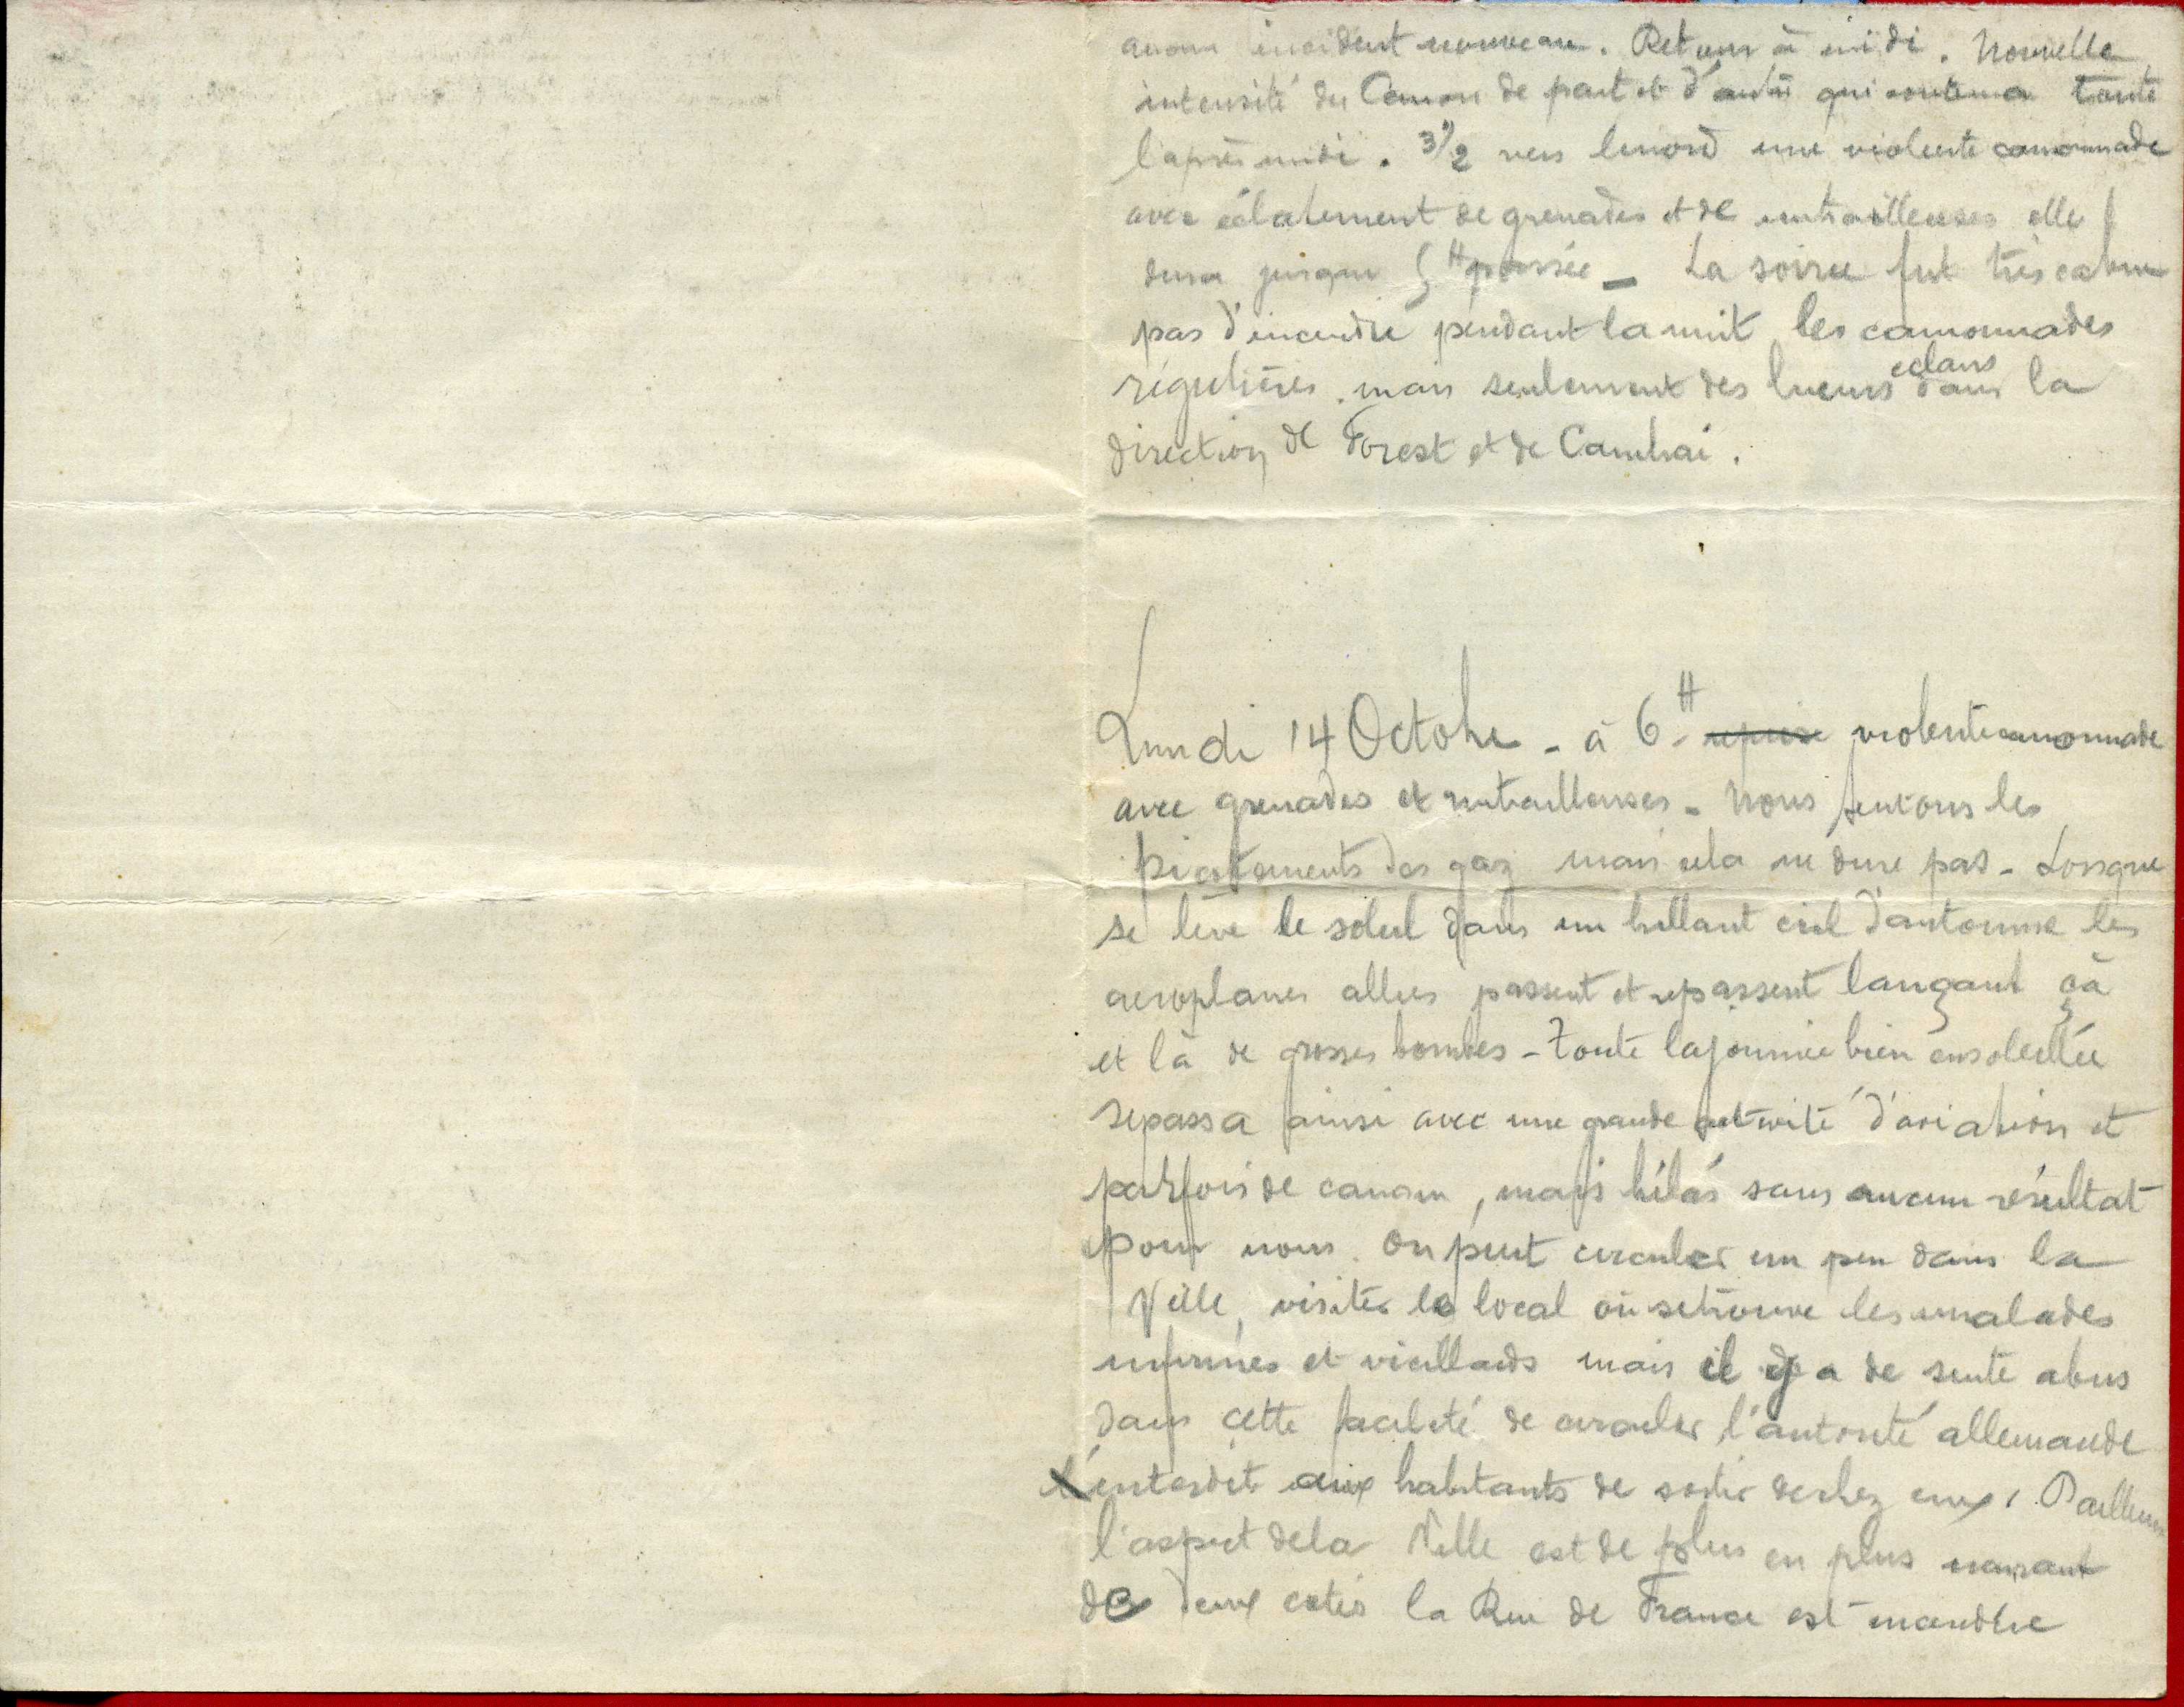 aucun incident nouveau. Retour à midi. Nouvelle
intensité du Canon de part et d'autre qui continua toute
l'après midi. 3 1/2 vers le nord une violente canonnade
avec éclatement de grenades et de mitrailleuses elle
dura jusque 5H passée _ La soirée fut très calme
pas d'incendie pendant la nuit les canonnades
régulières. mais seulement des lueurs eclairs dans la
direction de Forest et de Cambrai.
Lundi 14 Octobre - à 6H reprise violente canonnade
avec grenades et mitrailleuses - Nous sentons les
picotements des gaz mais cela ne dure pas - Lorsque
se lève le soleil dans un brillant ciel d'automne les
aeroplanes alliés passent et repassent lançant çà
et là de grosses bombes - Toute la journée bien ensoleillée
se passa ainsi avec une grande activité d'aviation et
parfois de canon, mais hélas sans aucun résultat
pour nous. On peut circuler un peu dans la
Ville, visiter le local où se trouve les malades
infirmes et vieillards mais il y a de suite abus
dans cette facilité de circuler l'autorité allemande
interdit aux habitants de sortir de chez eux. D'ailleurs
l'aspect de la Ville est de plus en plus navrant
de deux cotés la Rue de France est